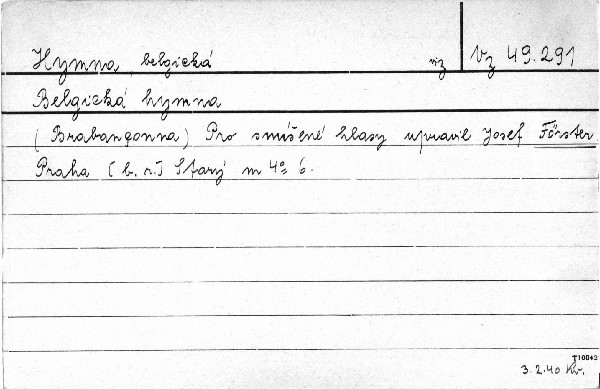 Hymna, belgická viz Vz 49.291
Belgická hymna
(Brabançonna) Pro smíšené hlasy upravil Josef Förster
Praha [b.r.] Starý m 4° 6.
T10042
3.2.40 Kv.